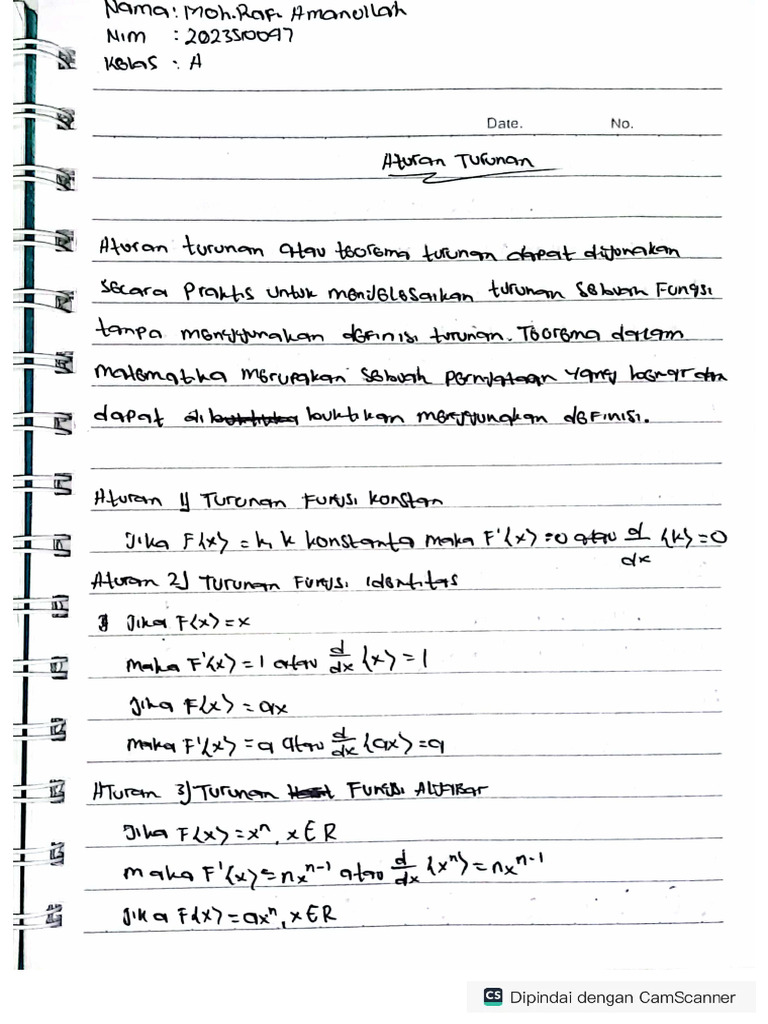 Nama: Moh. Rafi Amanullah
Nim : 2023510097
Kelas : A
Date. No.
Aturan Turunan
Aturan turunan atau teorema turunan dapat digunakan
secara praktis untuk menyelesaikan turunan sebuah fungsi
tanpa menggunakan definisi turunan. Teorema dalam
matematika merupakan sebuah pernyataan yang benar dan
dapat di buktikan menggunakan definisi.
Aturan 1) Turunan Fungsi konstan
Jika F(x) = k, k konstanta maka F'(x) = 0 atau d/dx (k) = 0
Aturan 2) Turunan Fungsi Identitas
Jika F(x) = x
maka F'(x) = 1 atau d/dx (x) = 1
Jika F(x) = ax
maka F'(x) = a atau d/dx (ax) = a
Aturan 3) Turunan Fungsi Aljabar
Jika F(x) = xⁿ, x ∈ R
maka F'(x) = nxⁿ⁻¹ atau d/dx (xⁿ) = nxⁿ⁻¹
Jika F(x) = axⁿ, x ∈ R
CS Dipindai dengan CamScanner